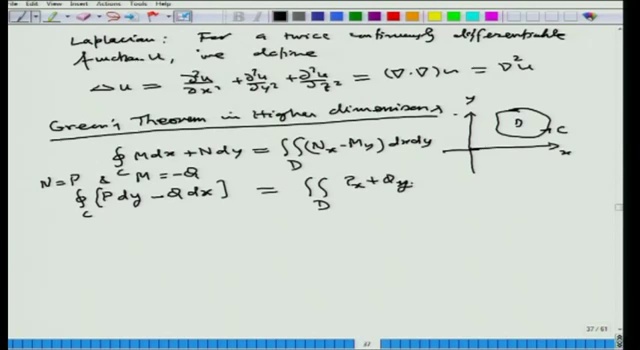 File Edit View Insert Actions Tools Help
Laplacian: For a twice continuously differentiable
function u, we define
Δu = ∂²u/∂x² + ∂²u/∂y² + ∂²u/∂z² = (∇·∇)u = ∇²u
Green's Theorem in Higher dimensions.
∮_C Mdx + Ndy = ∬_D (N_x - M_y) dxdy
N = P & M = -Q
∮_C [P dy - Q dx] = ∬_D P_x + Q_y
y
D
C
x
37 / 61
37